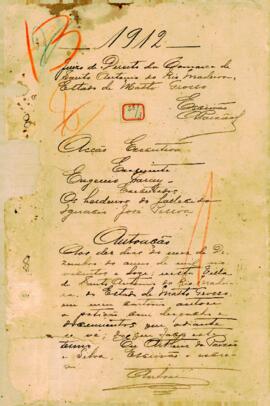 1912
Juizo de Direito da Comarca de
Santo Antonio do Rio Madeira,
Estado de Matto Grosso
Escrivão
Acção Executiva
Exequente
Eugenio
Executados
Os herdeiros do fallecido
Ignacio José
Autoação
Aos dez dias do mez de
Dezembro do anno de mil nove
centos e doze, nesta Villa
de Santo Antonio do Rio Madei
ra, do Estado de Matto Grosso,
em meu cartorio autoei
a petição com
documentos que adiante
se vê; do que faço este
termo. Eu Arthur
e Silva Escrivão o